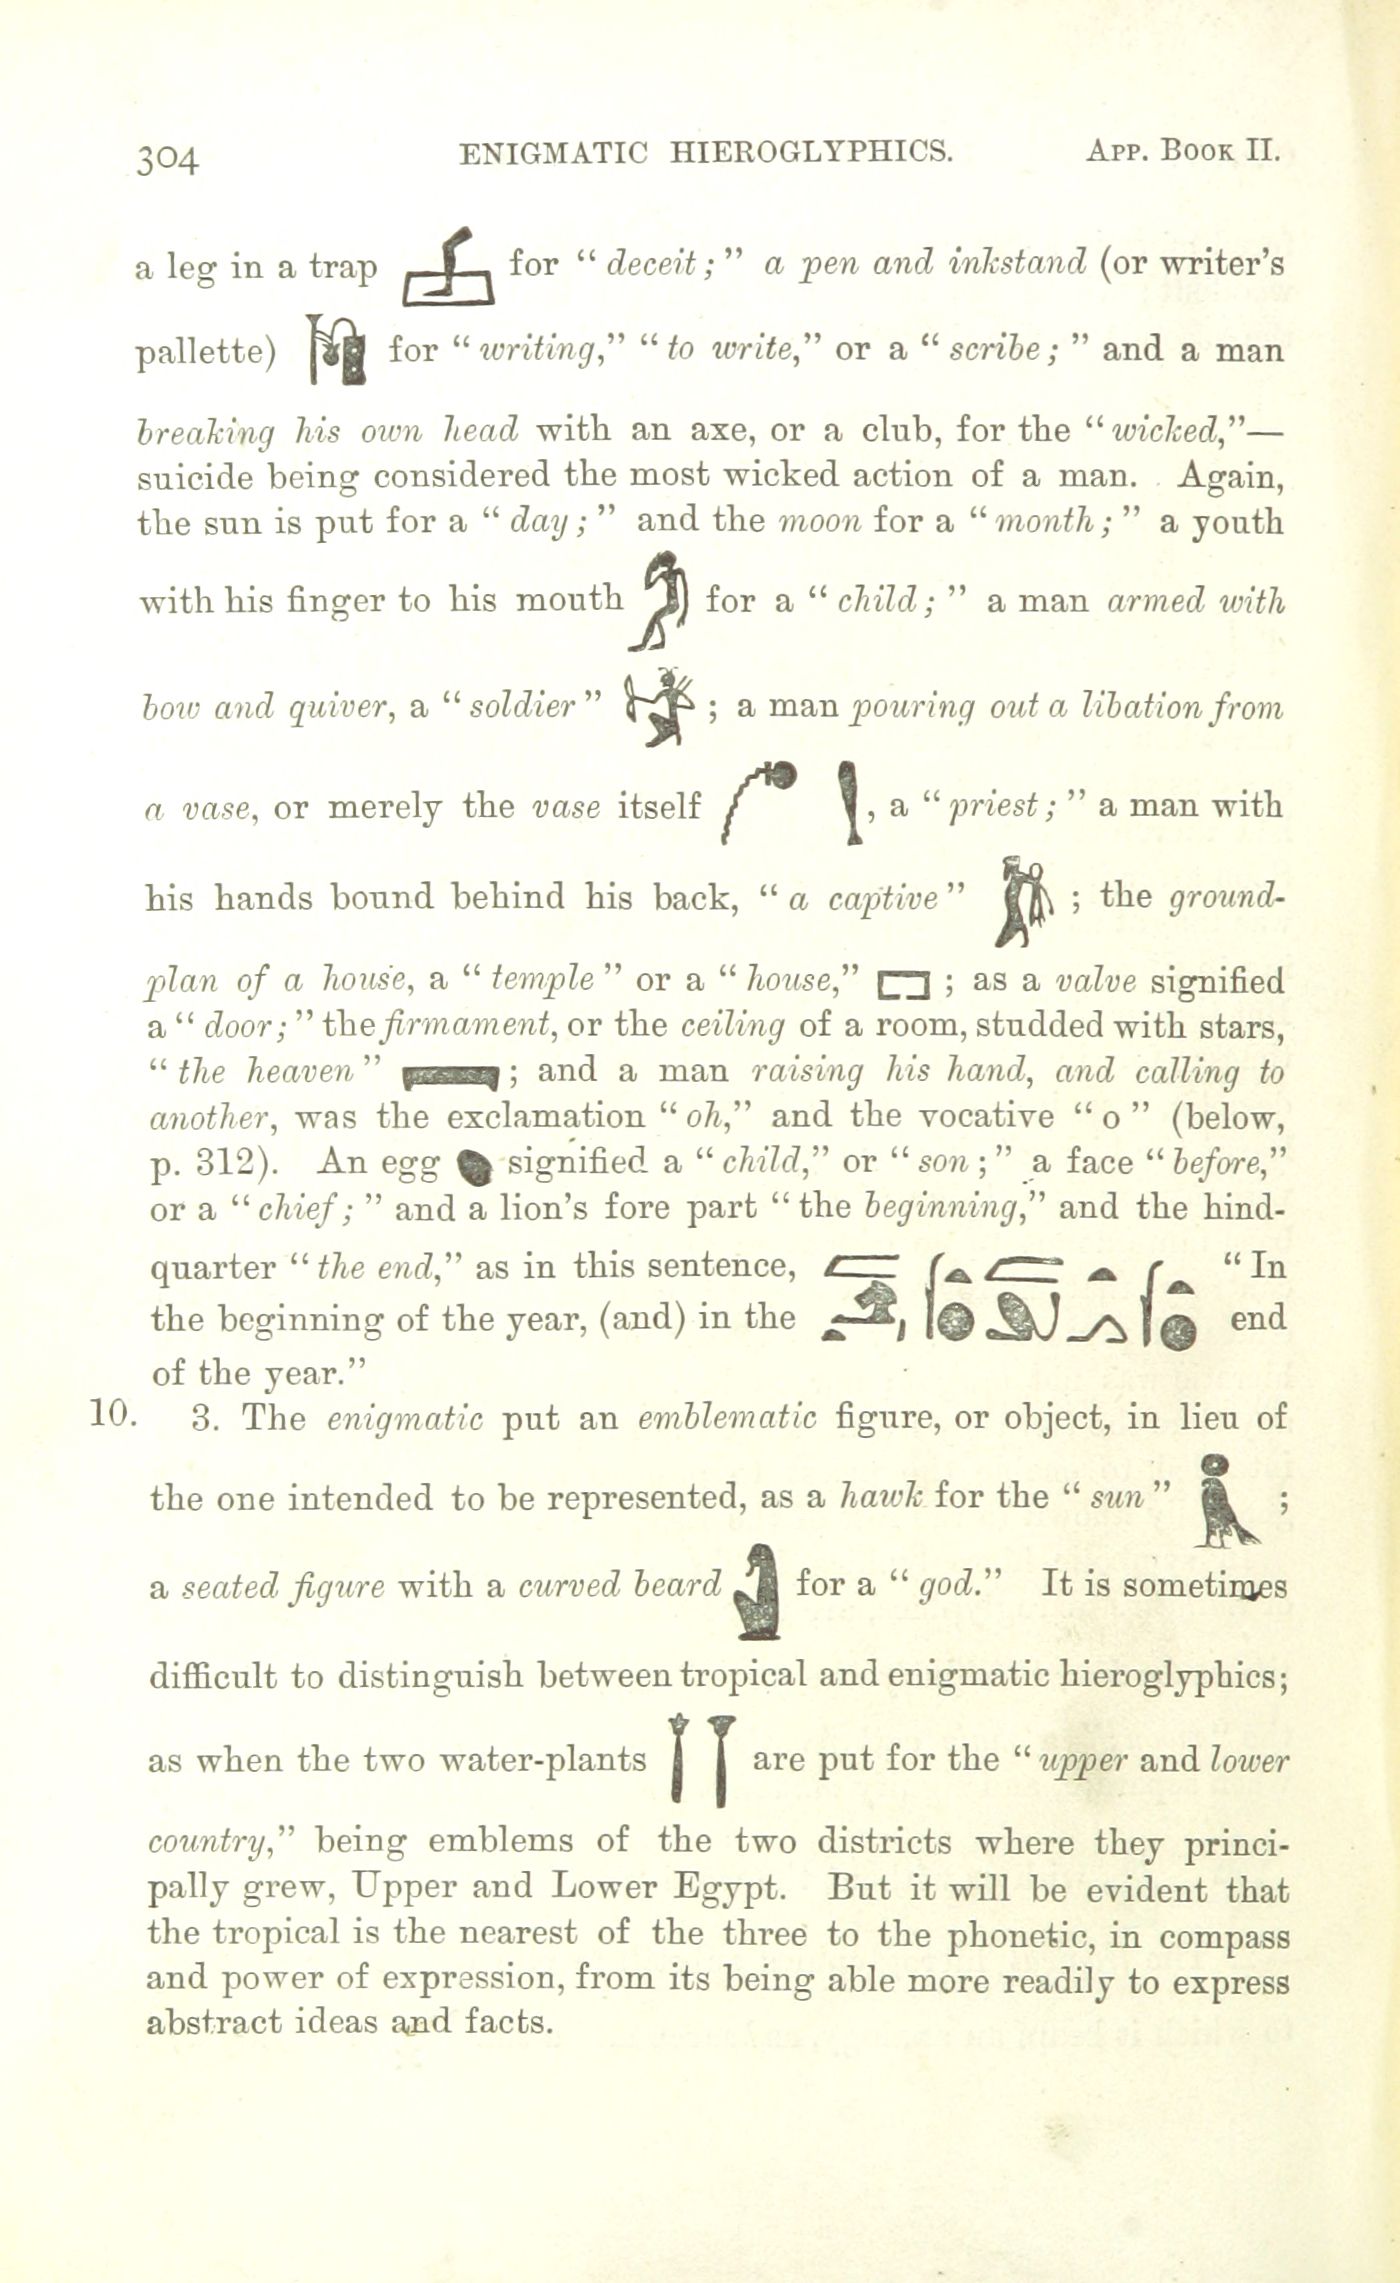 304 ENIGMATIC HIEROGLYPHICS. App. Book II.
a leg in a trap for “ deceit ; ” a pen and inkstand (or writer’s
pallette) for “ writing,” “ to write,” or a “ scribe ; ” and a man
breaking his own head with an axe, or a club, for the “ wicked,”—
suicide being considered the most wicked action of a man. Again,
the sun is put for a “ day ; ” and the moon for a “ month ; ” a youth
with his finger to his mouth for a “ child ; ” a man armed with
bow and quiver, a “ soldier ” ; a man pouring out a libation from
a vase, or merely the vase itself , a “ priest ; ” a man with
his hands bound behind his back, “ a captive ” ; the ground-
plan of a house, a “ temple ” or a “ house,” ; as a valve signified
a “ door ; ” the firmament, or the ceiling of a room, studded with stars,
“ the heaven ” ; and a man raising his hand, and calling to
another, was the exclamation “ oh,” and the vocative “ o ” (below,
p. 312). An egg signified a “ child,” or “ son ; ” a face “ before,”
or a “ chief ; ” and a lion’s fore part “ the beginning,” and the hind-
quarter “ the end,” as in this sentence, “ In
the beginning of the year, (and) in the end
of the year.”
10. 3. The enigmatic put an emblematic figure, or object, in lieu of
the one intended to be represented, as a hawk for the “ sun ” ;
a seated figure with a curved beard for a “ god.” It is sometimes
difficult to distinguish between tropical and enigmatic hieroglyphics;
as when the two water-plants are put for the “ upper and lower
country,” being emblems of the two districts where they princi-
pally grew, Upper and Lower Egypt. But it will be evident that
the tropical is the nearest of the three to the phonetic, in compass
and power of expression, from its being able more readily to express
abstract ideas and facts.